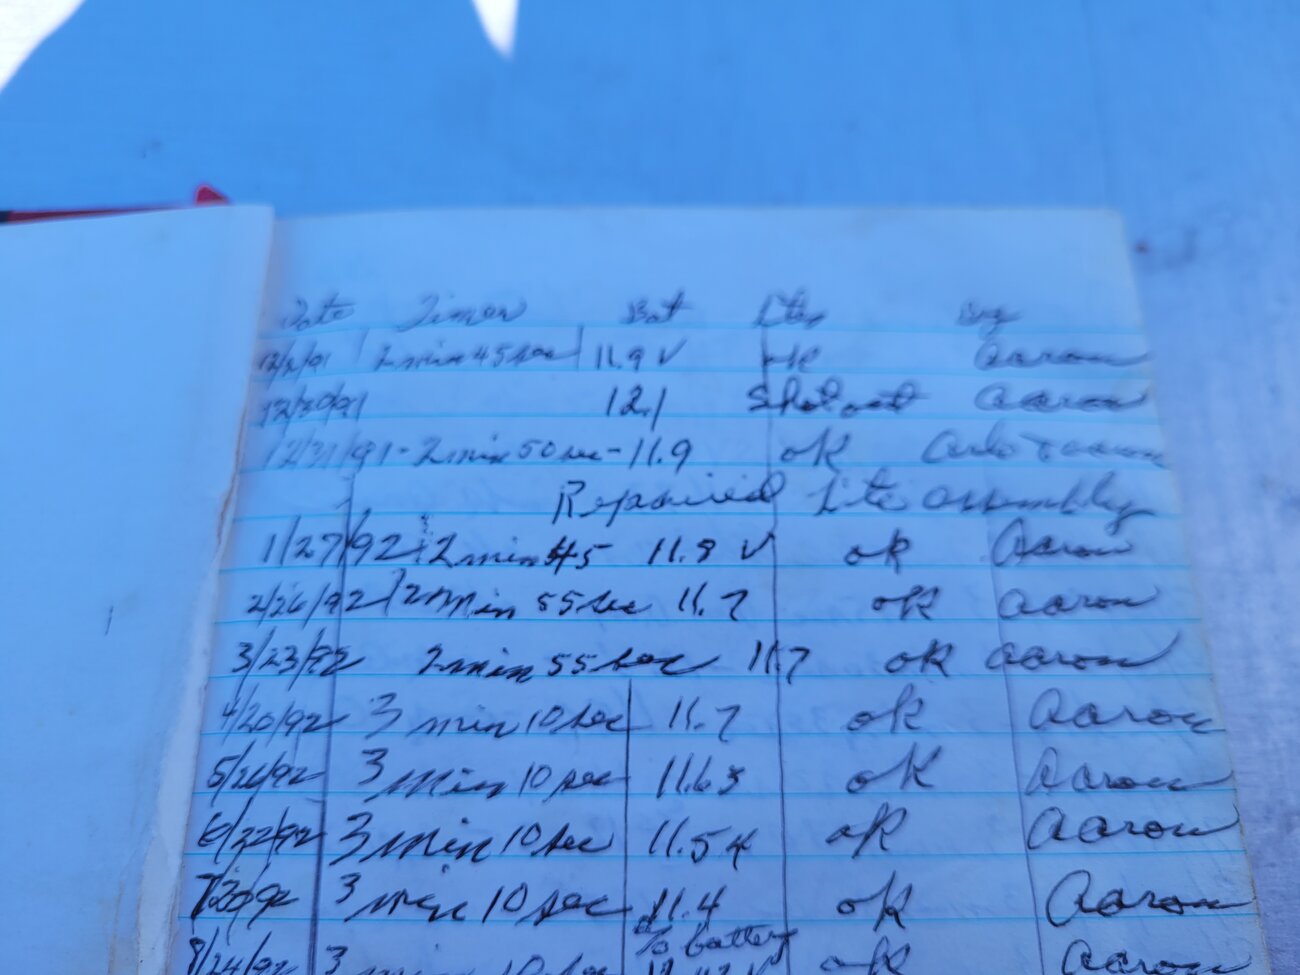 Date Timer Bat Lites By
12/2/91 2 min 45 sec 11.9 V ok Aaron
12/30/91 12.1 Shot out Aaron
12/31/91 - 2 min 50 sec - 11.9 ok & Aaron
Repaired Lite assembly
1/27/92 2 min 45 11.8 V ok Aaron
2/26/92 2 min 55 sec 11.7 ok Aaron
3/23/92 2 min 55 sec 11.7 ok Aaron
4/20/92 3 min 10 sec 11.7 ok Aaron
5/26/92 3 min 10 sec 11.63 ok Aaron
6/22/92 3 min 10 sec 11.54 ok Aaron
3 min 10 sec 11.4 ok Aaron
battery
8/24/92 3 min 10 sec ok Aaron